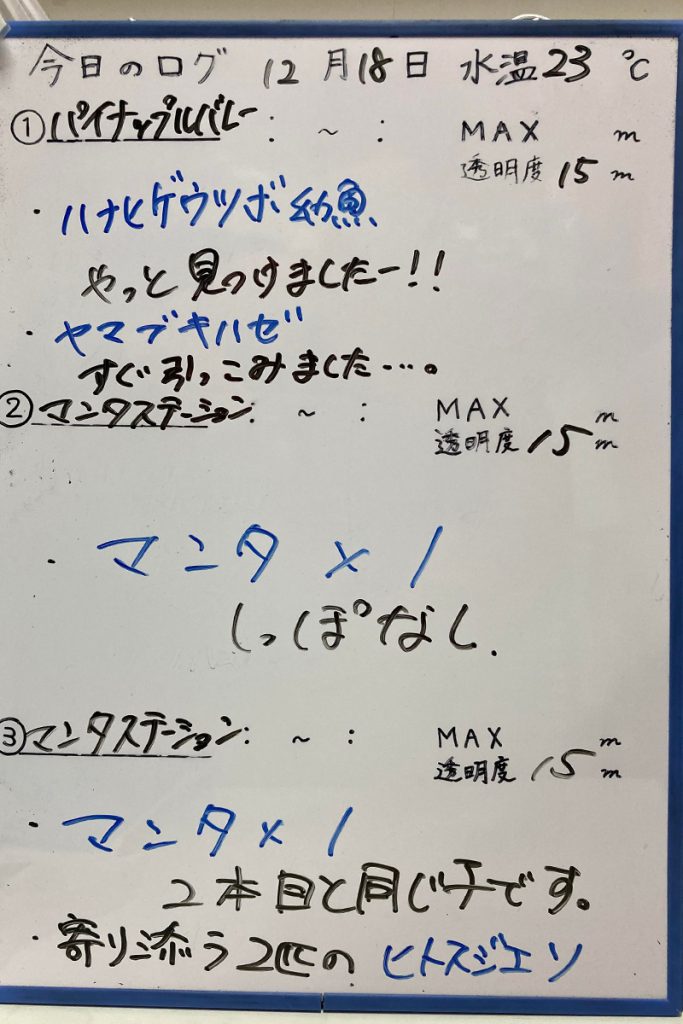 今日のログ 12月18日 水温23℃
①パイナップルバレー : ~ : MAX m
透明度 15 m
・ハナヒゲウツボ幼魚
やっと見つけましたー!!
・ヤマブキハゼ
すぐ引っこみました…。
②マンタステーション: ~ : MAX m
透明度 15 m
・マンタ×1
しっぽなし.
③マンタステーション: ~ : MAX m
透明度 15 m
・マンタ×1
2本目と同じ子です。
・寄り添う2匹のヒトスジエソ